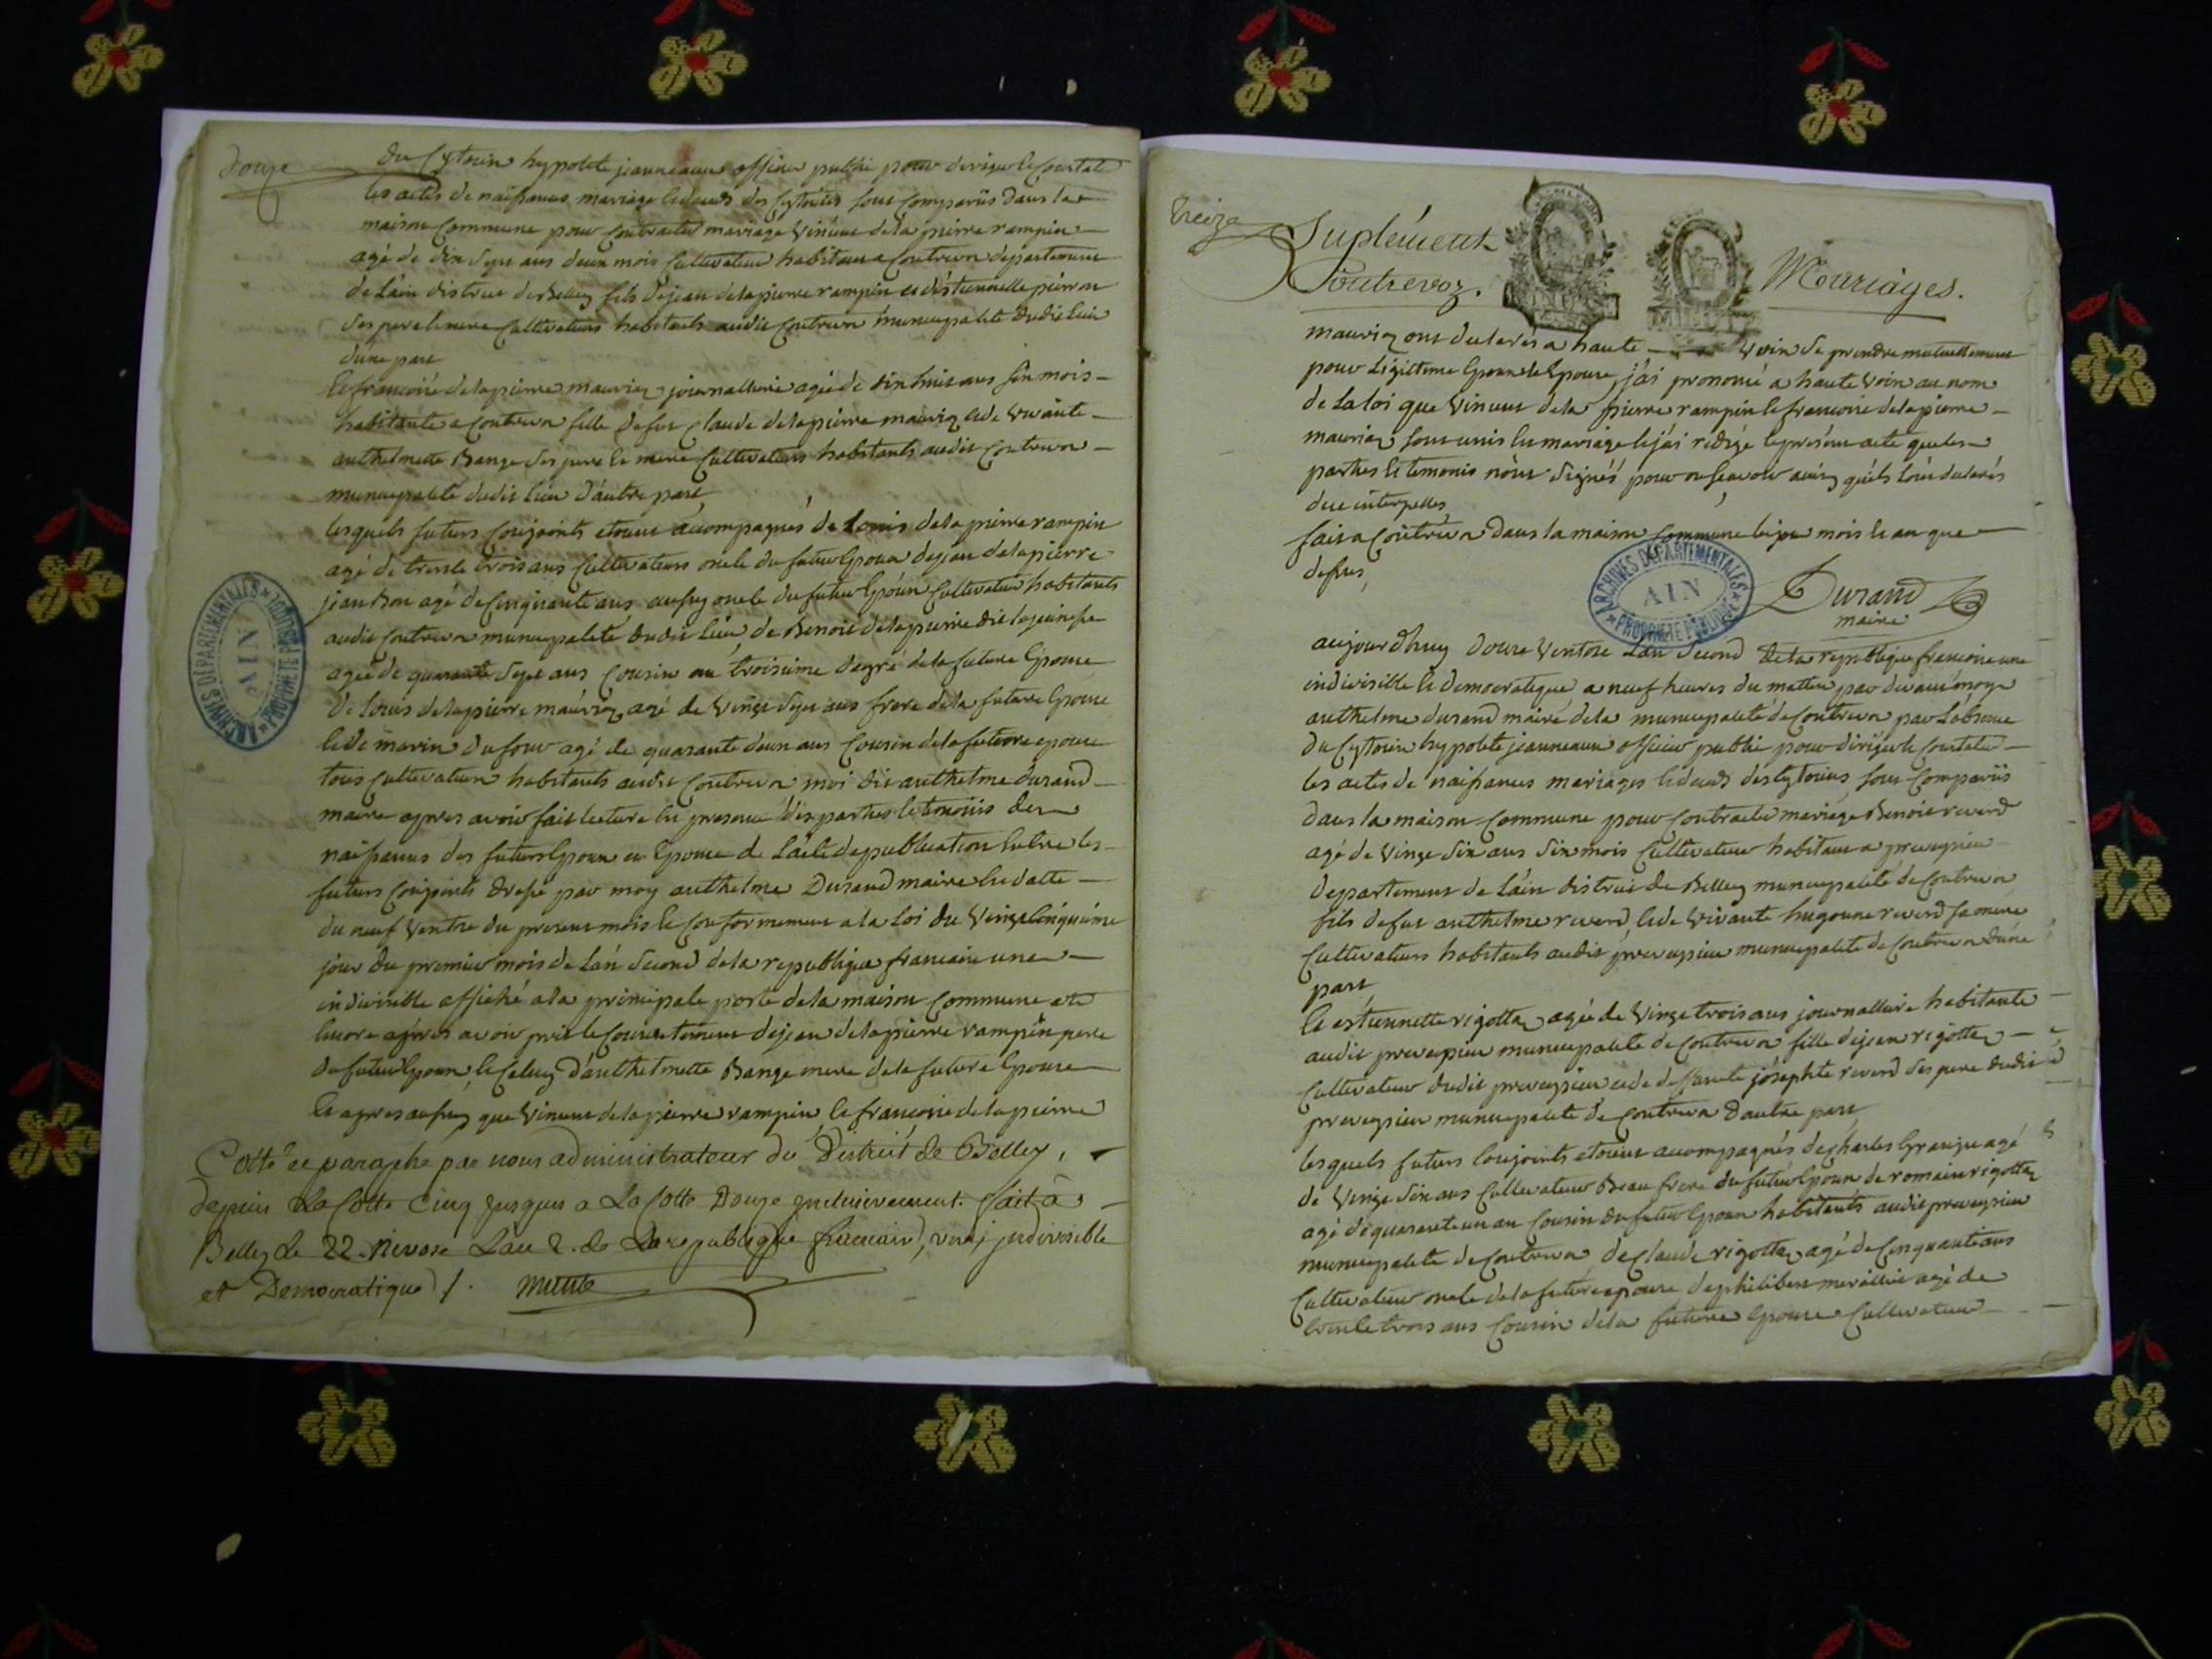 douze
du Cytoien hypolite jeanneaux officier public pour diriger le constate
les actes de naissances mariage le deceds des Cytoiens sont comparüs dans la
maison commune pour contracter mariage vincent delapierre rampin
agé de dix sept ans deux mois cultivateur habitant a contrevoz departement
de l'ain district de Belley fils de jean delapierre rampin et d'estiennette pierron
ses pere le mere cultivateurs habitants audit contrevoz municipalité dudit lieu
d'une part
le francoise delapierre mauriez journalliere agée de dix huit ans six mois
habitante a contrevoz fille de feu claude delapierre mauriez et de vivante
anthelmette Bange ses pere le mere cultivateurs habitants audit contrevoz
municipalité dudit lieu d'autre part
lesquels futurs conjoints etoient acompagnés de Louis delapierre rampin
agé de trente trois ans cultivateurs oncle du futur Epoux de jean delapierre
jean Bon agé de cinquante ans aussy oncle du futur Epoux cultivateur habitants
audit contrevoz municipalité dudit lieu de Benoit delapierre dit
agée de quarante sept ans cousin au troisieme degré de la future Epouse
de Louis delapierre mauriez agé de vingt sept ans frere de la future Epouse
le de marin dufour agé de quarante deux ans cousin de la future epouse
tous cultivateurs habitants audit contrevoz moi dit anthelme durand
maire apres avoir fait lecture en presence des parties le temoins des
naissances des futurs Epoux en Epouse de l'acte de publication entre les
futurs conjoints dressé par moy anthelme Durand maire en datte
du neuf ventose du present mois le conformement a la loi du vingt cinquieme
jour du premier mois de l'an second de la republique francaise une
indivisible affiché a la principale porte de la maison commune
encore apres avoir pris le consentement de jean delapierre rampin pere
du futur Epoux, le celuy d'anthelmette Bange mere de la future Epouse
le apres aussy que vincent delapierre rampin, le francoise delapierre
Cotté et paraphé par nous administrateur du District de Belley,
depuis La Cotte cinq jusques a La Cotte Douze inclusivement. fait à
Belley Le 22 Nivose L'an 2. de La republique francaise, une, indivisible
et Democratique /.
treize
Suplément
Contrevoz.
Mariages.
mauriez ont declarés a haute voix se prendre mutuellement
pour Legittime Epoux le Epouse, j'ai prononcé a haute voix au nom
de la loi que vincent dela pierre rampin le francoise delapierre
mauriez sont unis en mariage le j'ai redigé le présent acte que les
parties le temoins n'ont signés pour ne sçavoir ainsy qu'ils l'ont declarés
de ce interpellés
fait a contrevoz dans la maison commune les jour mois le an que
dessus,
Durand
maire
ARCHIVES DÉPARTEMENTALES
AIN
PROPRIÉTÉ PUBLIQUE
aujourdhuy douze ventose L'an second de la republique francoise une
indivisible le democratique a neuf heures du mattin par devant moy
anthelme durand maire dela municipalité de contrevoz par L'absence
du Cytoien hypolite jeanneaux officier public pour diriger le constater
les actes de naissances mariages le deceds des Cytoiens sont comparüs
dans la maison commune pour contracter mariage Benoit reverd
agé de vingt six ans six mois cultivateur habitant a preveyzieu
departement de L'ain district de Belley municipalité de contrevoz
fils de feu anthelme reverd, le de vivante hugonne reverd sa mere
cultivateurs habitants audit preveyzieu municipalité de contrevoz d'une
part
le estiennette rigottaz agée de vingt trois ans journalliere habitante
audit preveyzieu municipalité de contrevoz fille de jean rigottaz
cultivateur dudit preveyzieu et de deffunte josephte reverd ses pere dudit
preveyzieu municipalité de contrevoz d'autre part
lesquels futurs conjoints etoient acompagnés de charles agé
de vingt six ans cultivateur Beau frere du futur Epoux de romain rigottaz
agé de quarante un an cousin du futur Epoux habitants audit preveyzieu
municipalité de contrevoz de claude rigottaz agé de cinquante ans
cultivateur oncle de la future epouse de philibert agé de
trente trois ans cousin dela future Epouse cultivateur
ARCHIVES DÉPARTEMENTALES
AIN
PROPRIÉTÉ PUBLIQUE